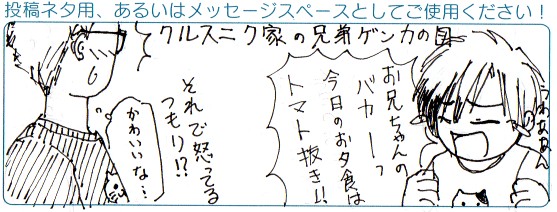 投稿ネタ用、あるいはメッセージスペースとしてご使用ください！
クルスニク家の兄弟ゲンカの図
うわああん
お兄ちゃんの
バカーーっ
今日のお夕食は
トマト抜き!!
それで怒ってる
つもり!?
かわいいな…